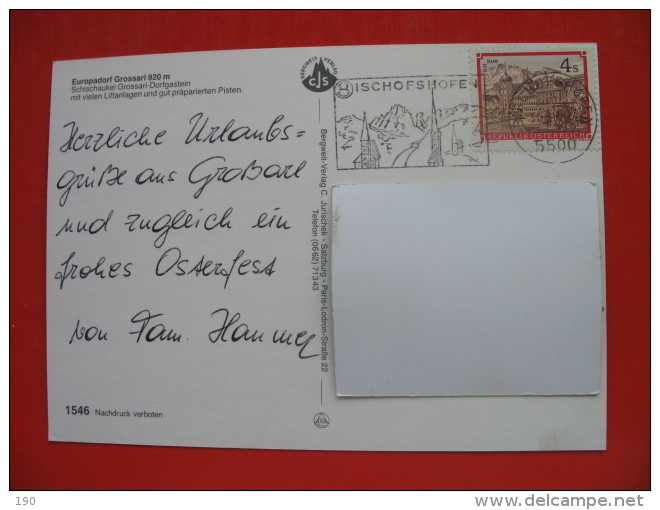 Europadorf Grossarl 920 m
Schischaukel Grossarl-Dorfgastein
mit vielen Liftanlagen und gut präparierten Pisten.
BERGWELT VERLAG
CJS
BISCHOFSHOFEN
4 S
REPUBLIK ÖSTERREICH
5500
Herzliche Urlaubs=
grüße aus Großarl
und zugleich ein
frohes Osterfest
von Fam.
Bergwelt-Verlag C. Jurischek - Salzburg - Paris-Lodron-Straße 22
Telefon (0662) 71343
1546 Nachdruck verboten
190
delcampe.net